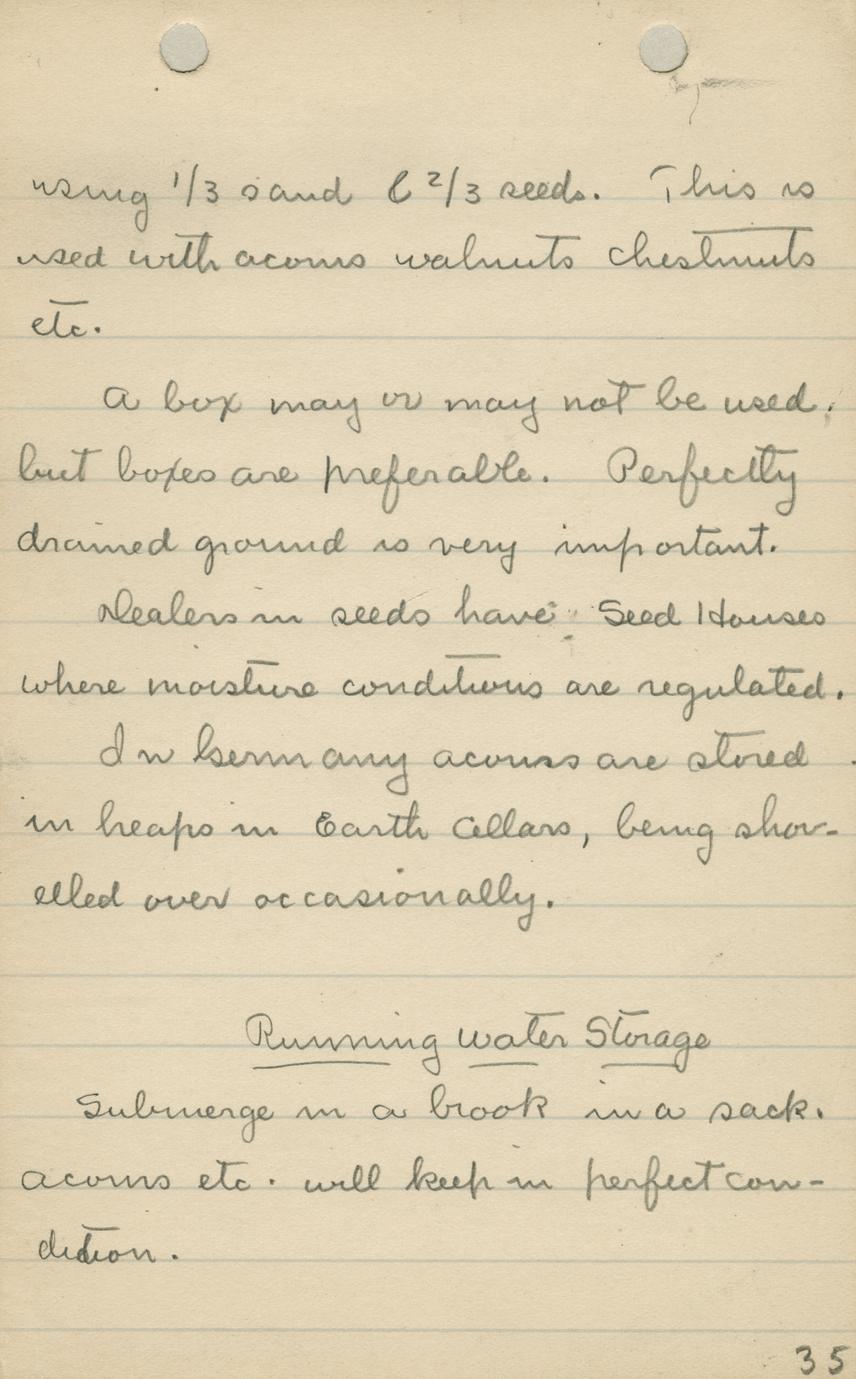 using 1/3 sand & 2/3 seeds. This is
used with acorns walnuts chestnuts
etc.
A box may or may not be used.
but boxes are preferable. Perfectly
drained ground is very important.
Dealers in seeds have Seed Houses
where moisture conditions are regulated.
In Germany acorns are stored
in heaps in Earth Cellars, being shov-
elled over occasionally.
Running Water Storage
Submerge in a brook in a sack.
acorns etc. will keep in perfect con-
dition.
35